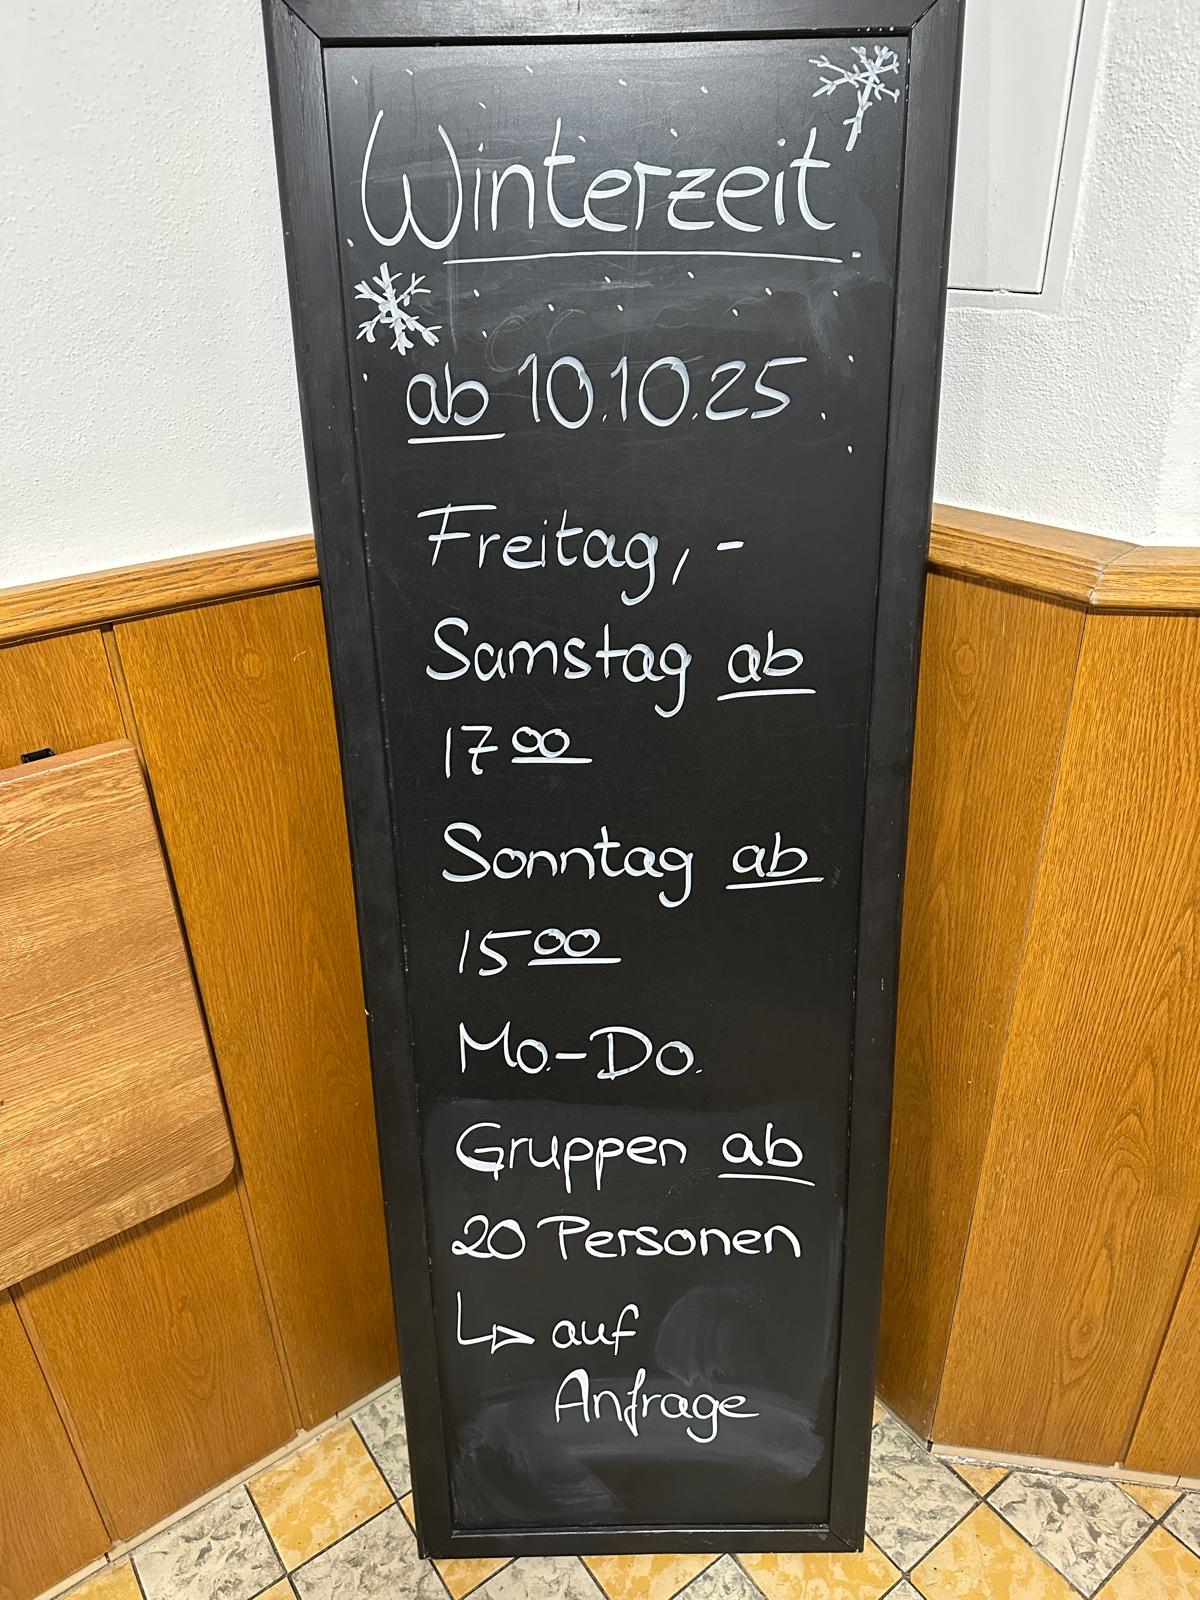 Winterzeit
ab 10.10.25
Freitag, -
Samstag ab
17 00
Sonntag ab
15 00
Mo.-Do.
Gruppen ab
20 Personen
↳ auf
Anfrage